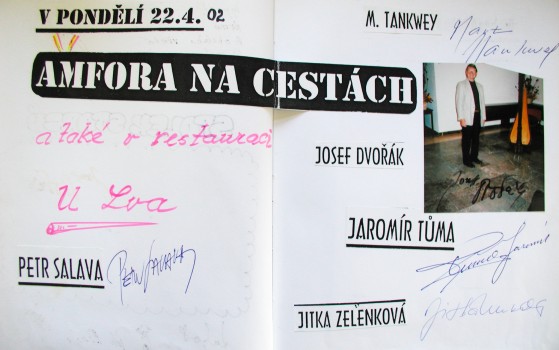 V PONDĚLÍ 22.4. 02
AMFORA NA CESTÁCH
a také v restauraci
U Lva
PETR SALAVA
M. TANKWEY
JOSEF DVOŘÁK
JAROMÍR TŮMA
JITKA ZELENKOVÁ